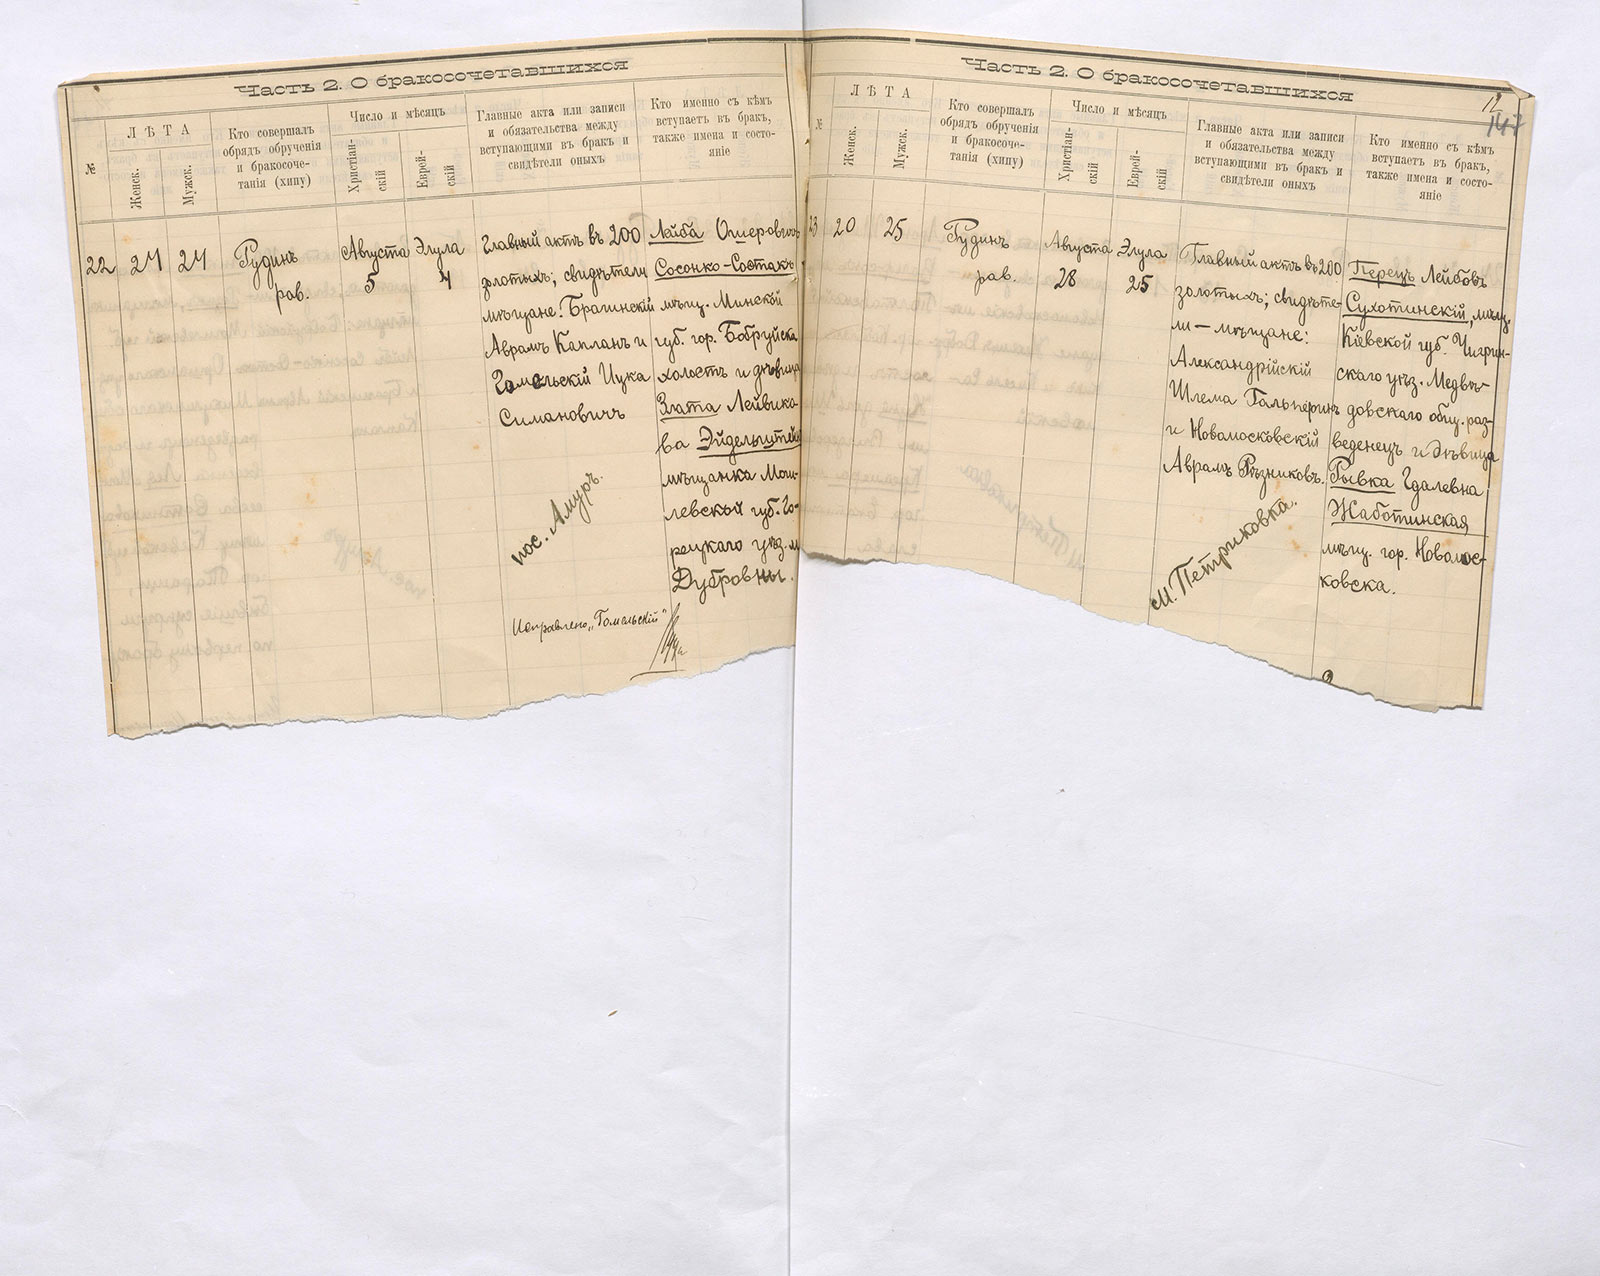 Часть 2. О бракосочетавшихся
№
ЛѢТА
Женск.
Мужск.
Кто совершалъ
обрядъ обрученія
и бракосоче-
танія (хипу)
Число и мѣсяцъ
Христіан-
скій
Еврей-
скій
Главные акта или записи
и обязательства между
вступающими въ бракъ и
свидѣтели оныхъ
Кто именно съ кѣмъ
вступаетъ въ бракъ,
также имена и состо-
яніе
22
24
24
Рудинъ
рав.
Августа
5
Элула
4
Главный актъ въ 200
золотыхъ; свидѣтели
мѣщане: Брагинскій
Аврамъ Капланъ и
Гомельскій Цука
Симановичъ
пос. Амуръ.
Исправлено „Гомельскій“
Лейба Ошеровичъ
Сосонко-Состакъ
мѣщ. Минской
губ. гор. Бобруйска
холостъ и дѣвица
Злата Лейвико-
ва Эйдельштейн
мѣщанка Моги-
левской губ. Го-
рецкаго уѣз. м.
Дубровны.
Часть 2. О бракосочетавшихся
147
№
ЛѢТА
Женск.
Мужск.
Кто совершалъ
обрядъ обрученія
и бракосоче-
танія (хипу)
Число и мѣсяцъ
Христіан-
скій
Еврей-
скій
Главные акта или записи
и обязательства между
вступающими въ бракъ и
свидѣтели оныхъ
Кто именно съ кѣмъ
вступаетъ въ бракъ,
также имена и состо-
яніе
23
20
25
Рудинъ
рав.
Августа
28
Элула
25
Главный актъ въ 200
золотыхъ; свидѣте-
ли — мѣщане:
Александрійскій
Шлема Гальперинъ
и Новомосковскій
Аврамъ Рѣзниковъ.
м. Петриковка.
Перецъ Лейбовъ
Сухотинскій, мѣщ.
Кіевской губ. Чигрин-
скаго уѣз. Медвѣ-
довскаго общ. раз-
веденецъ и дѣвица
Рывка Гдалевна
Жаботинская
мѣщ. гор. Новомос-
ковска.